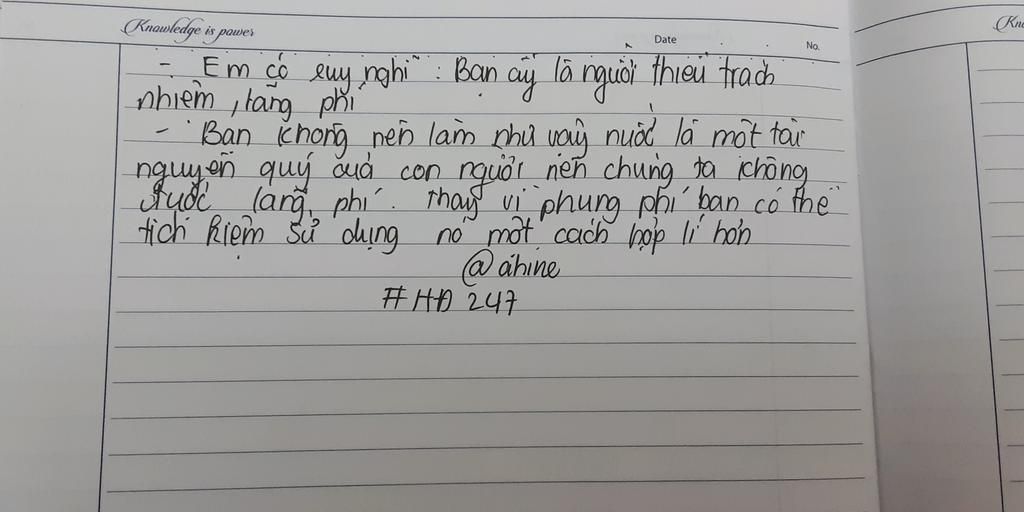 Knowledge is power
Date
No.
Kno
- Em có suy nghĩ : Bạn ấy là người thiếu trách
nhiệm, lãng phí
- Bạn không nên làm như vậy nước là một tài
nguyên quý của con người nên chúng ta không
được lãng phí. thay vì phung phí bạn có thể
tích kiệm sử dụng nó một cách hợp lí hơn
@ahine
#HĐ 247